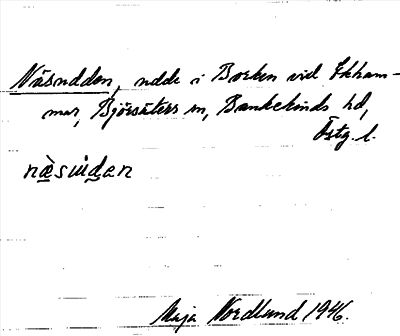 Näsudden, udde i Borken vid Ekham-
mar, Björsäters sn, Bankekinds hd,
Östg. l.
næ̀su̇̀dən
Maja Nordlund 1946.